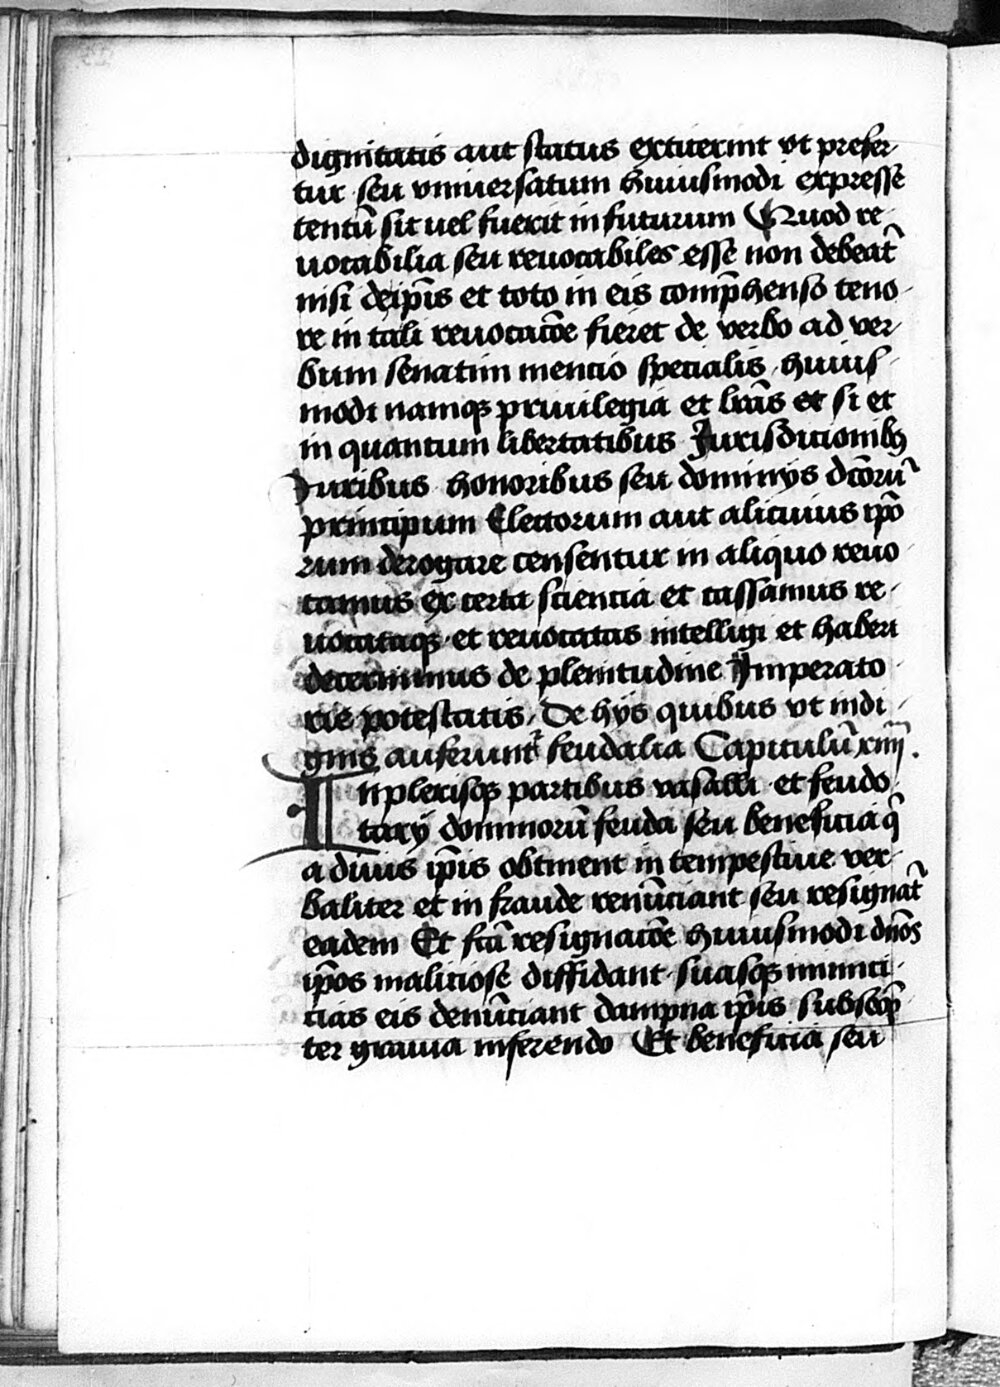 dignitatis aut status extiterint vt prefer
tur seu vniuersatum huiusmodi expresse
tentū sit uel fuerit in futurum Quod re
uocabilia seu reuocabiles esse non debeāt
nisi de ip̄is et toto in eis comp̄henso teno
re in tali reuocac̄oe fieret de verbo ad ver
bum seriatim mencio specialis huius
modi namqꝫ priuilegia et l̄ras et si et
in quantum libertatibus Jurisdicionibꝫ
Juribus honoribus seu dominijs dc̄orū
principum Electorum aut alicuius ip̄o
rum derogare censentur in aliquo reuo
camus ex certa sciencia et cassamus re
uocataqꝫ et reuocatas intelligi et haberi
decernimus de plenitudine Imperato
rie potestatis De hijs quibus vt indi
gnis auferunt᷑ feudalia Capitulū xiiij
In plerisqꝫ partibus vasalli et feudo
tarij dominorū feuda seu beneficia q̄
a diuis ip̄is obtinent in tempestiue ver
baliter et in fraude renūciant seu resignāt
eadem Et fc̄a resignac̄oe huiusmodi dn̄os
ip̄os maliciose diffidant suasqꝫ inimici
cias eis denūciant dampna ip̄is subseqn̄
ter grauia inferendo Et beneficia seu